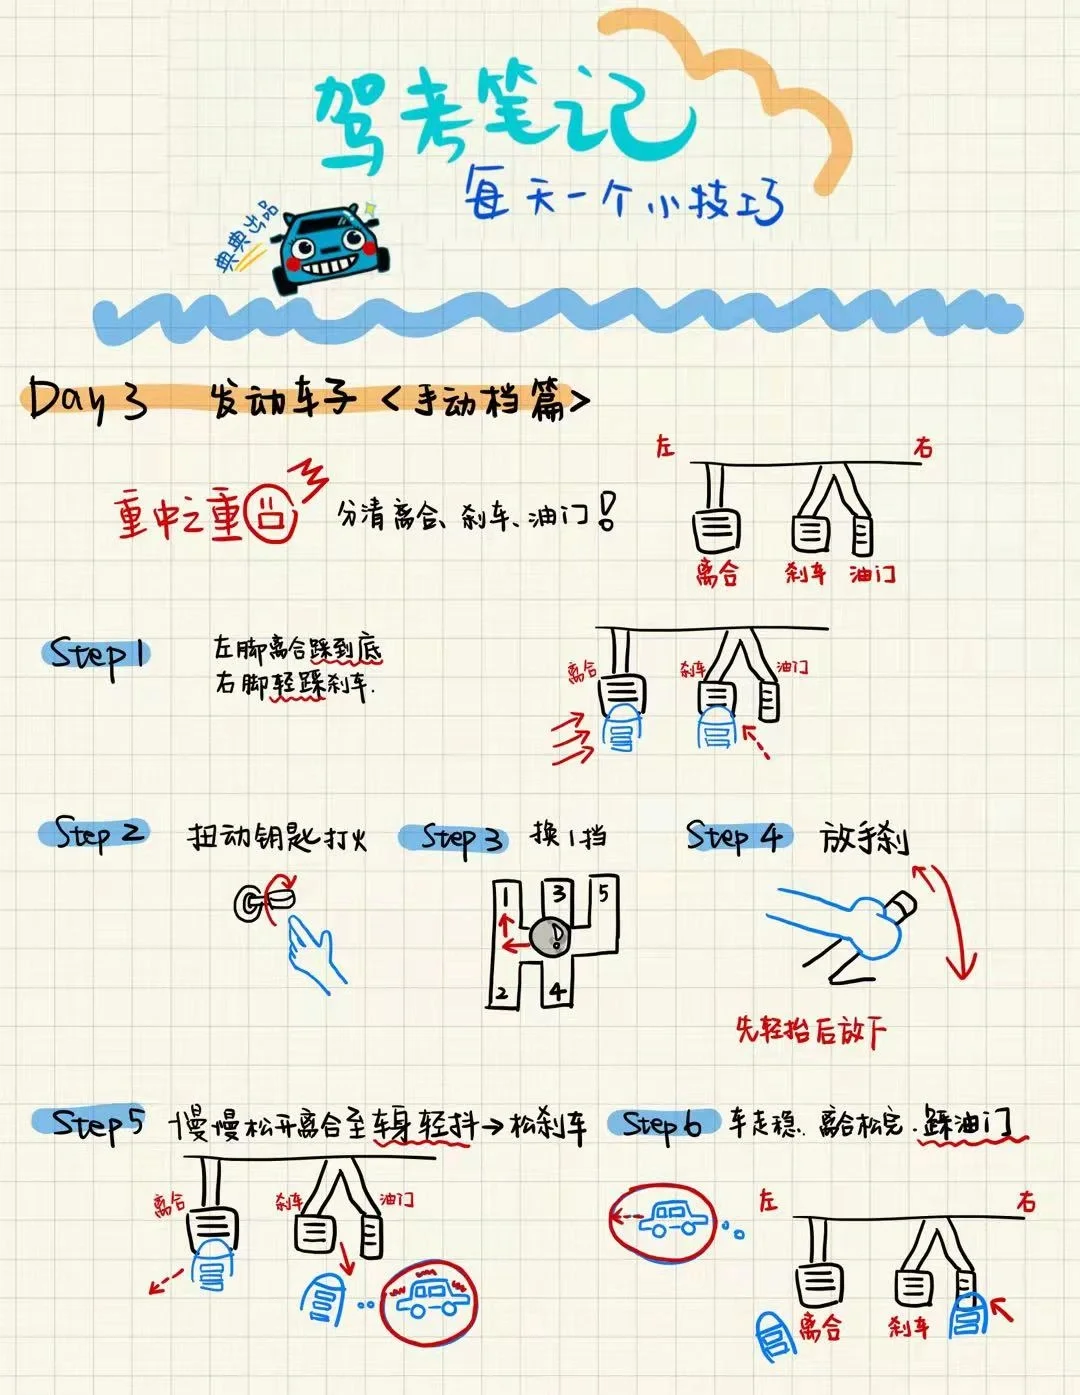 驾考笔记
每天一个小技巧
典典夯品
Day 3 发动车子<手动档篇>
重中之重 分清离合、刹车、油门!
左 右
离合 刹车 油门
Step 1 左脚离合踩到底
右脚轻踩刹车.
离合 刹车 油门
Step 2 扭动钥匙打火
Step 3 换1挡
1 3 5
2 4
Step 4 放手刹
先轻抬后放下
Step 5 慢慢松开离合至车身轻抖→松刹车
离合 刹车 油门
Step 6 车走稳.离合松完.踩油门
左 右
离合 刹车